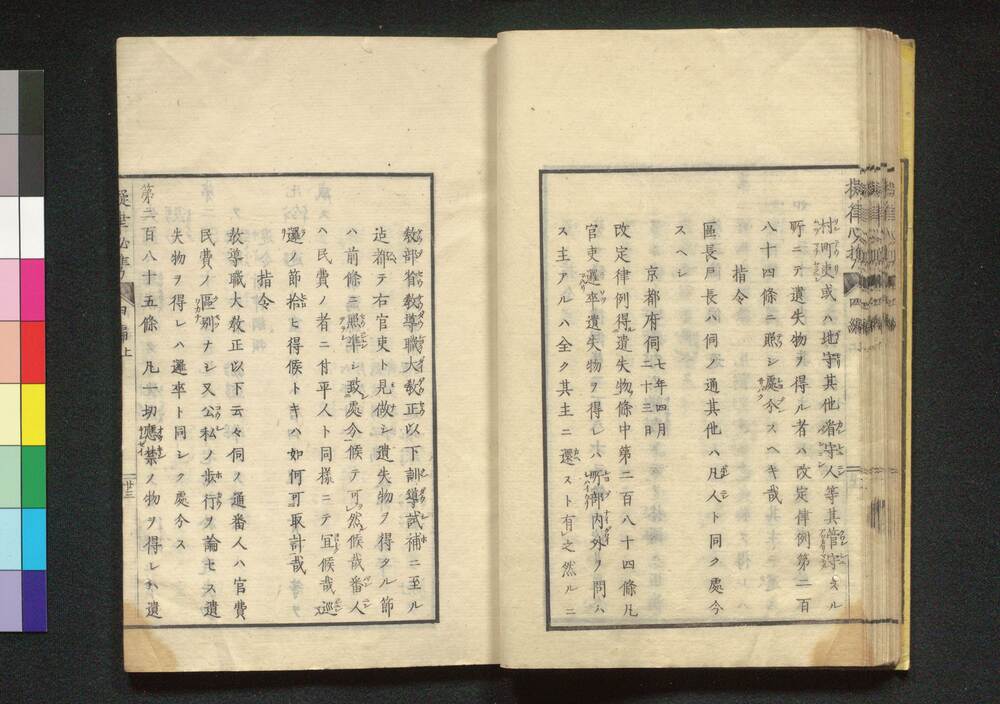 村町吏或ハ地守其他省守人等其管守スル
所ニテ遺失物ヲ得ル者ハ改定律例第二百
八十四條ニ照シ處分スヘキ哉
指令
區長戸長ハ伺ノ通其他ハ凡人ト同ク處分
スヘシ
京都府伺 七年四月二十三日
改定律例得遺失物條中第二百八十四條凡
官吏邏卒遺失物ヲ得レハ所部内外ヲ問ハ
ス主アルハ全ク其主ニ還スト有之然ルニ
教部省教導職大教正以下訓導試補ニ至ル
迠都テ右官吏ト見做シ遺失物ヲ得タル節
ハ前條ニ照準シ致處分候テ可然候哉番人
ハ民費ノ者ニ付平人ト同樣ニテ宜候哉巡
邏ノ節拾ヒ得候トキハ如何可取計哉
指令
教導職大教正以下云々伺ノ通番人ハ官費
民費ノ區別ナシ又公私ノ歩行ヲ論セス遺
失物ヲ得レハ邏卒ト同シク處分ス
第二百八十五條 凡一切應禁ノ物ヲ得レハ遺
四編上
廿三